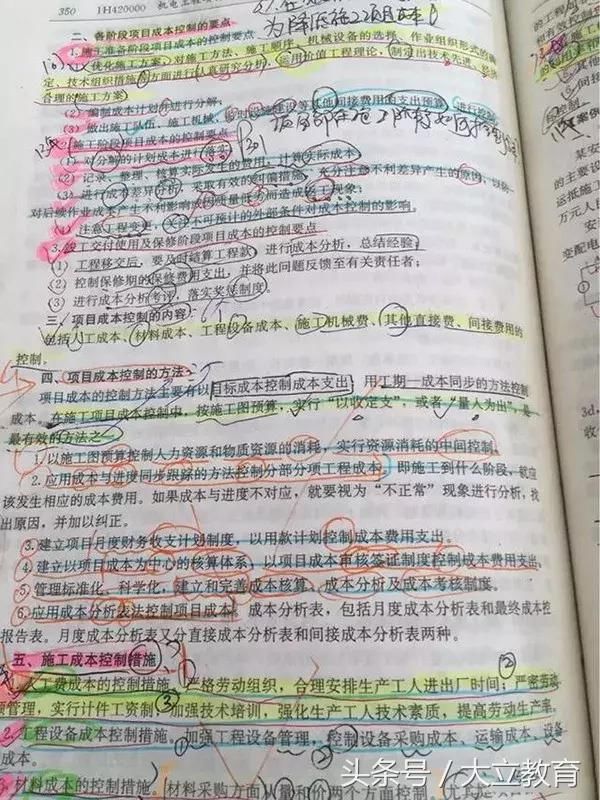 350 1H420000 机电工程项
为降低施工项目成本
二、各阶段项目成本控制的要点
1.施工准备阶段项目成本的控制要点
(1)优化施工方案,对施工方法、施工顺序、机械设备的选择、作业组织形式的确
定、技术组织措施等方面进行认真研究分析,运用价值工程理论,制定出技术先进、经济
合理的施工方案。
(2)编制成本计划并进行分解;
(3)做出施工队伍、施工机械、临时设施建设等其他间接费用的支出预算,进行控制。
2.施工阶段项目成本的控制要点
(1)对分解的计划成本进行落实;
(2)记录、整理、核算实际发生的费用,计算实际成本;
(3)进行成本差异分析,采取有效的纠偏措施,充分注意不利差异产生的原因,以防
对后续作业成本产生不利影响或因质量低劣而造成返工现象;
(4)注意工程变更,关注不可预计的外部条件对成本控制的影响。
3.竣工交付使用及保修阶段项目成本的控制要点
(1)工程移交后,要及时结算工程款,进行成本分析,总结经验;
(2)控制保修期的保修费用支出,并将此问题反馈至有关责任者;
(3)进行成本分析考评,落实奖惩制度。
三、项目成本控制的内容
包括人工成本、材料成本、工程设备成本、施工机械费、其他直接费、间接费用的
控制。
四、项目成本控制的方法
项目成本的控制方法主要有以目标成本控制成本支出 用工期—成本同步的方法控制
成本。在施工项目成本控制中,按施工图预算,实行“以收定支”,或者“量入为出”,是
最有效的方法之一。
1.以施工图预算控制人力资源和物质资源的消耗,实行资源消耗的中间控制。
2.应用成本与进度同步跟踪的方法控制分部分项工程成本,即施工到什么阶段,就应
该发生相应的成本费用。如果成本与进度不对应,就要视为“不正常”现象进行分析,找
出原因,并加以纠正。
3.建立项目月度财务收支计划制度,以用款计划控制成本费用支出。
4.建立以项目成本为中心的核算体系,以项目成本审核签证制度控制成本费用支出。
5.管理标准化、科学化,建立和完善成本核算、成本分析及成本考核制度。
6.应用成本分析表法控制项目成本。成本分析表,包括月度成本分析表和最终成本控
报告表。月度成本分析表又分直接成本分析表和间接成本分析表两种。
五、施工成本控制措施
人工费成本的控制措施。严格劳动组织,合理安排生产工人进出厂时间;②严密劳动
管理,实行计件工资制;③加强技术培训,强化生产工人技术素质,提高劳动生产率。
2.工程设备成本控制措施。加强工程设备管理,控制设备采购成本、运输成本、设备
成本。
3.材料成本的控制措施。材料采购方面从量和价两个方面控制,尤其是
的工程
案例
某安
的主要设
运抵施工
万元人民
变配电
3d,
收
头条号/大立教育